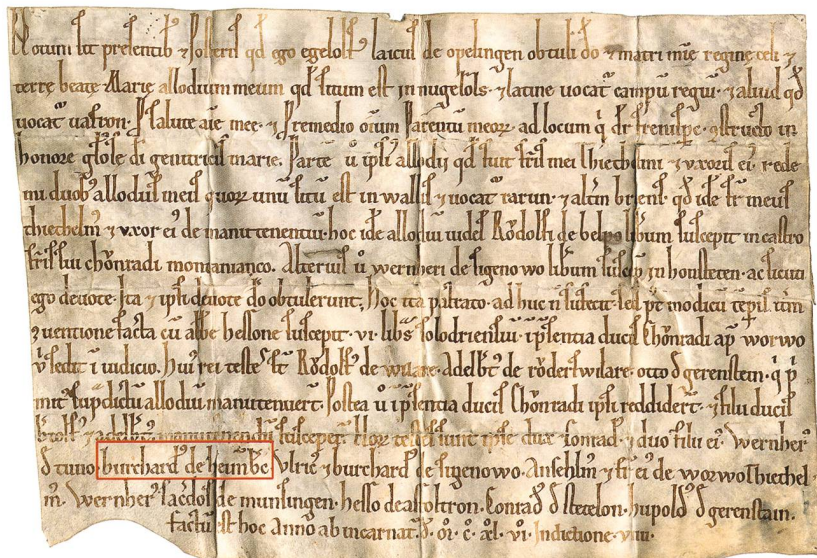 Notum sit presentib ⁊ posteris qd ego egelolf laicus de opelingen obtuli do ⁊ matri mie regine celi ⁊
terre beate Marie allodium meum qd situm est in nugerols ⁊ latine uocat campu regiu ⁊ aliud qd
uocat uaffron p salute aie mee ⁊ p remedio oium parentu meor ad locum q dr frenisperc gstructo in
honore gliose di genitricis marie. Parte u ipsi allodii qd fuit fris mei thiethelmi ⁊ uxoris ei rede
mi duob allodiis meis quor unu situ est in wallis ⁊ uocat rarun ⁊ altm briens qd ide fr meus
thiethelm ⁊ uxor ei de manutenentiu hoc ide allodiu iudes Rodolfi de belpo libum suscepit in castro
fris sui chonradi montanianco. Alterius u wernheri de sigenowo libum suscep in honsteten ac sicuti
ego deuote Ita ⁊ ipsi deuote do obtulerunt. Hoc ita patrato ad huc n suffecit sed pt modicu tepis itm
guentione facta cu abbe hessone suscepit vi libs solodriensiu ipsentia ducis Chonradi ap worwo
u sedit i iudicio. Hui rei testes st Rodolf de wilare Adelbt de roderswilare otto d gerenstein q p
mit supdictu allodiu manutenuert. Postea u ipsentia ducis Chonradi ipsi reddidert ⁊ filii ducis
btolf ⁊ adelbt manutenendu suscepert. Hor testes sunt ipse dux Conrad ⁊ duo filii ei Wernher
d tuno burchard de heimbc Ulric ⁊ burchard de sigenowo Anshelm ⁊ fr ei de worwo thiethel
m. Wernher sacdos de munsingen hesso de assoltron. Conrad d stetelon hupold d gerenstain.
factu est hoc Anno ab incarnat d oi c xl vi Indictione viiii